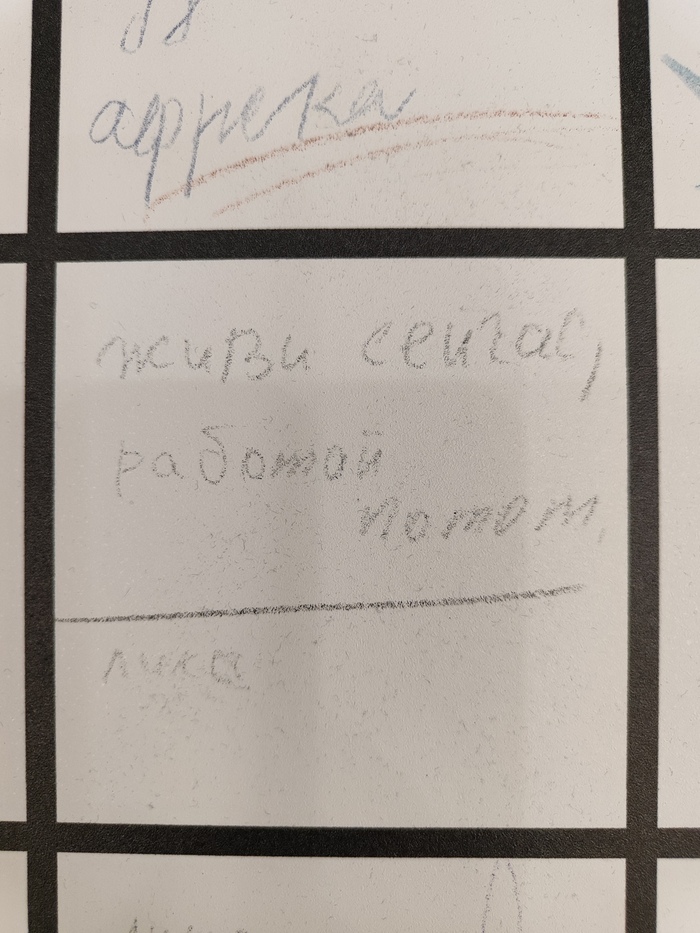 африка
живи сейчас,
работай
потом
лика